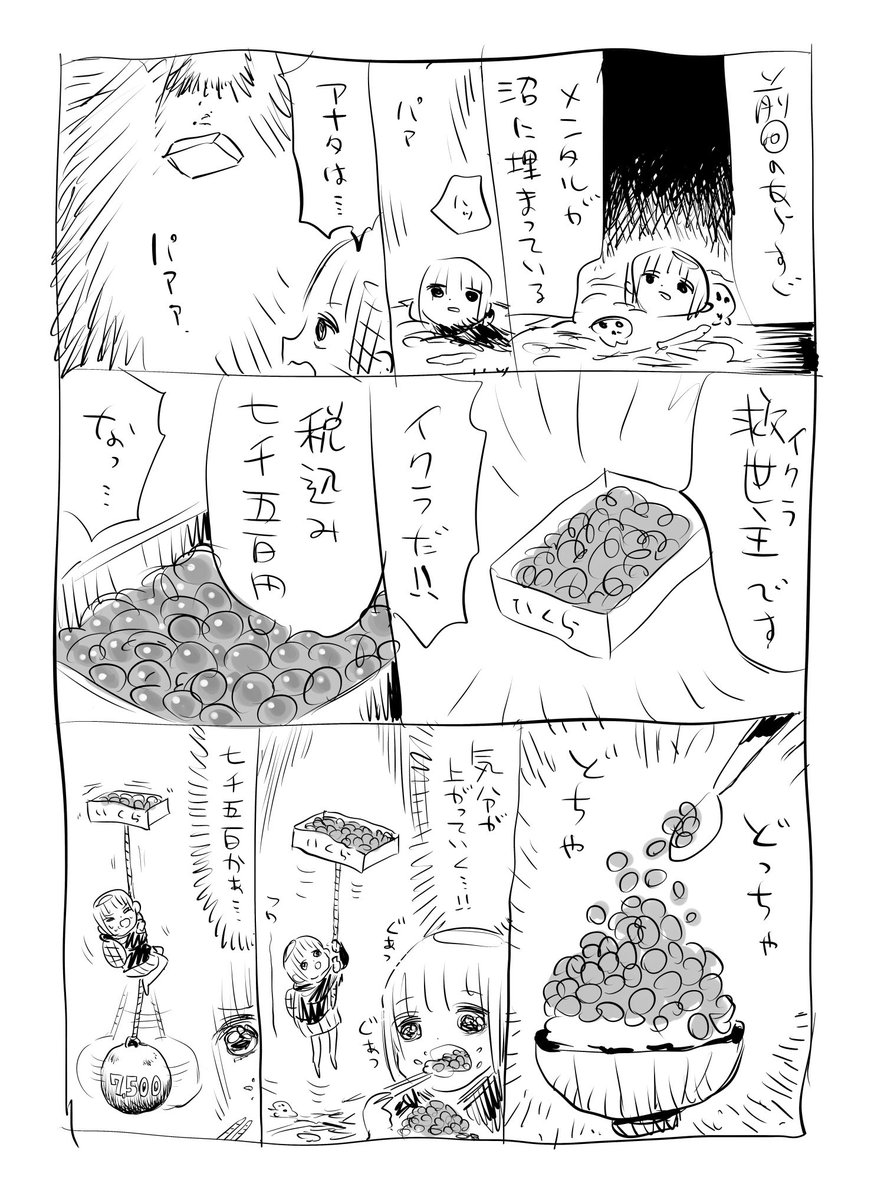 前回のあらすじ
メンタルが
沼に埋まっている
ハッ
パァ
アナタは…
パァァ
イクラ
救世主です
いくら
イクラだ!!
税込み
七千五百円
なっ…
どっちゃ
どちゃ
気分が
上がっていく…!!
じあっ
じあっ
いくら
つり
七千五百かぁ…
いくら
7,500